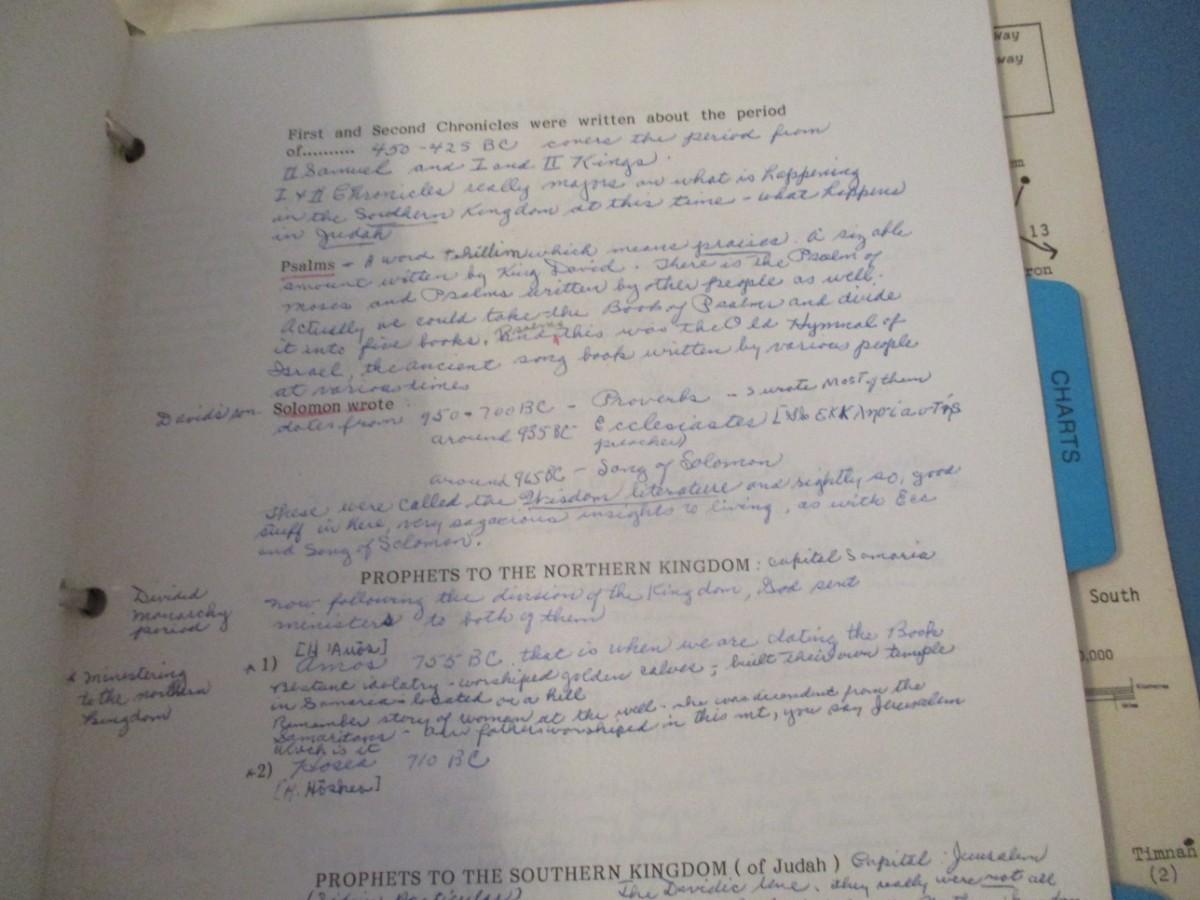 First and Second Chronicles were written about the period
of.......... 450-425 BC covers the period from
II Samuel and I and II Kings.
I & II Chronicles really majors on what is happening
in the Southern Kingdom at this time - what happens
in Judah
Psalms - A word tehillim which means praises. A sizable
amount written by King David. There is the Psalm of
Moses and Psalms written by other people as well.
Actually we could take the Book of Psalms and divide
it into five books. And Psalms this was the Old Hymnal of
Israel, the ancient song book written by various people
at various times
David's son Solomon wrote :
dates from 950-700 BC - Proverbs - S wrote most of them
around 935 BC Ecclesiastes
preacher)
around 965 BC - Song of Solomon
These were called the Wisdom literature and rightly so, good
stuff in here, very sagacious insights to living, as with Ecc
and Song of Solomon.
PROPHETS TO THE NORTHERN KINGDOM : capital Samaria
Divided
monarchy
period
Now following the division of the Kingdom, God sent
ministers to both of them
* Ministering
to the northern
Kingdom
1) Amos 755 BC that is when we are dating the Book
Blatant idolatry - worshiped golden calves ; built their own temple
in Samaria - located on a hill
Remember story of woman at the well - she was from the
Samaritans - our fathers worshiped in this mt, you say Jerusalem
which is it
2) Hosea 710 BC
PROPHETS TO THE SOUTHERN KINGDOM ( of Judah ) Capital : Jerusalem
The Davidic line. They really were not all
way
way
13
ron
CHARTS
South
0,000
Timnah
(2)